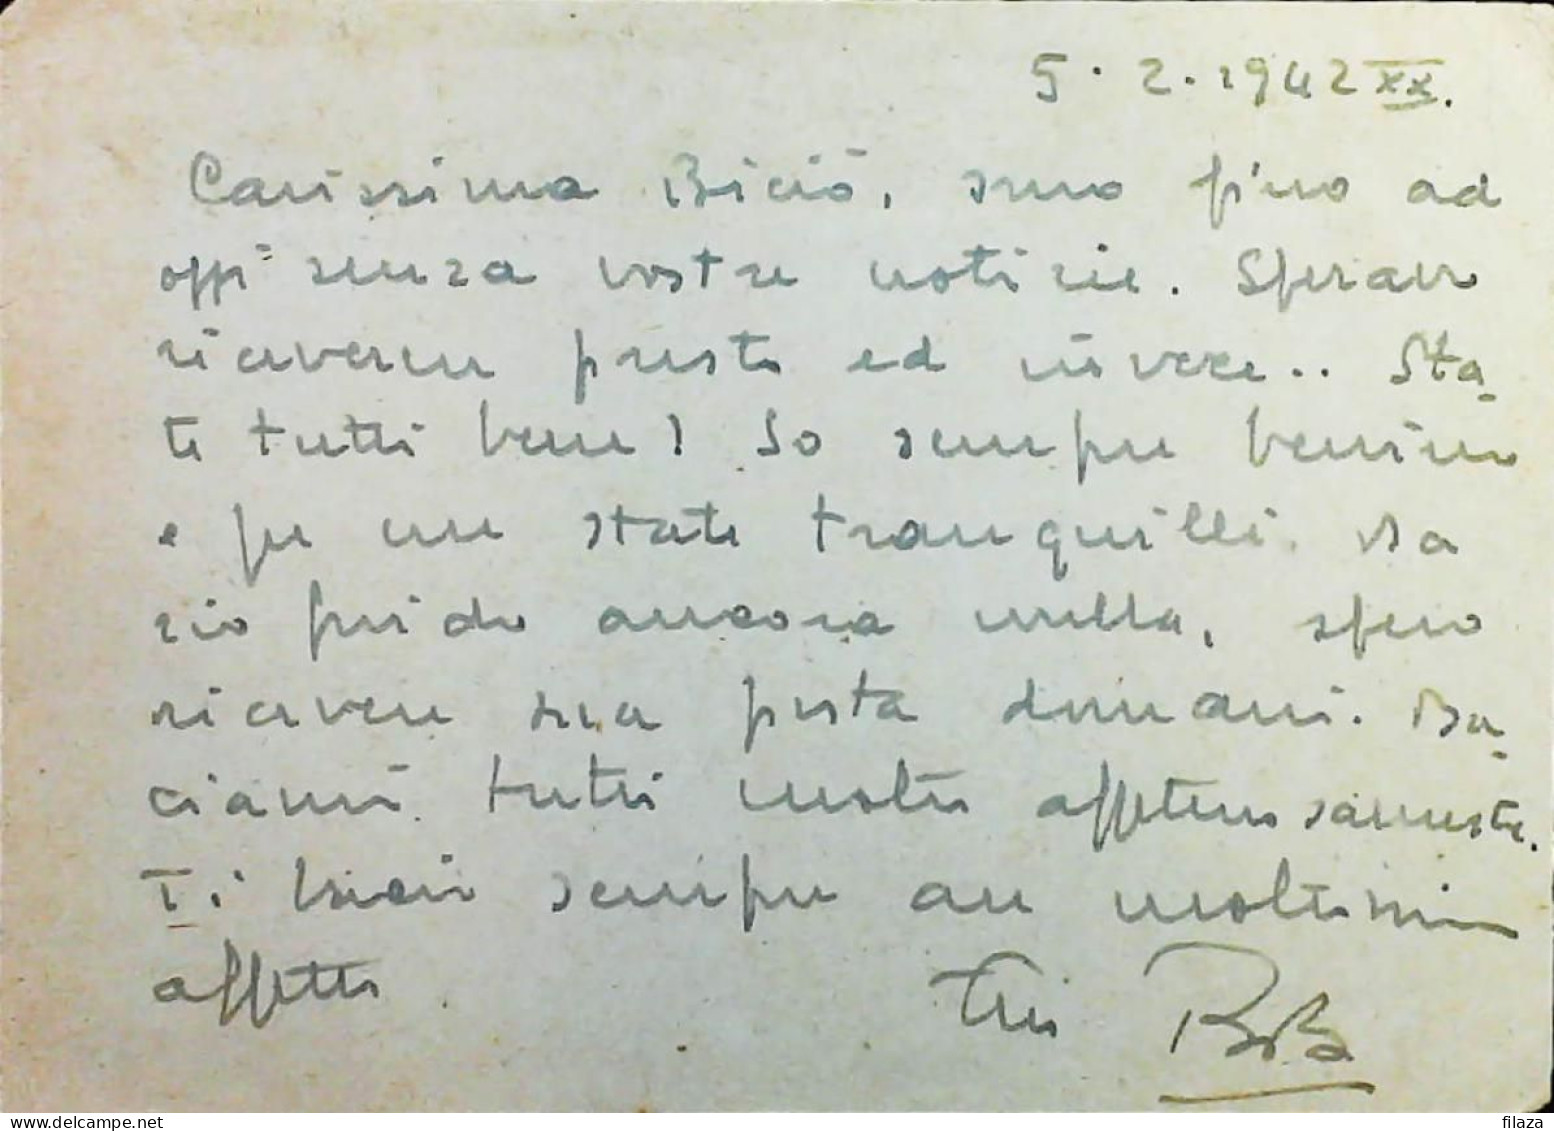 5. 2. 1942 XX.
Carissima Biciò, sono fino ad
oggi senza vostre notizie. Speravo
riaverne presto ed invece.. Sta-
te tutti bene? Io sempre benissimo
e per me state tranquilli. Da
zio Guido ancora nulla, spero
riavere sua posta domani. Ba-
ciami tutti molto affettuosamente.
Ti bacio sempre con moltissimo
affetto. Tuo